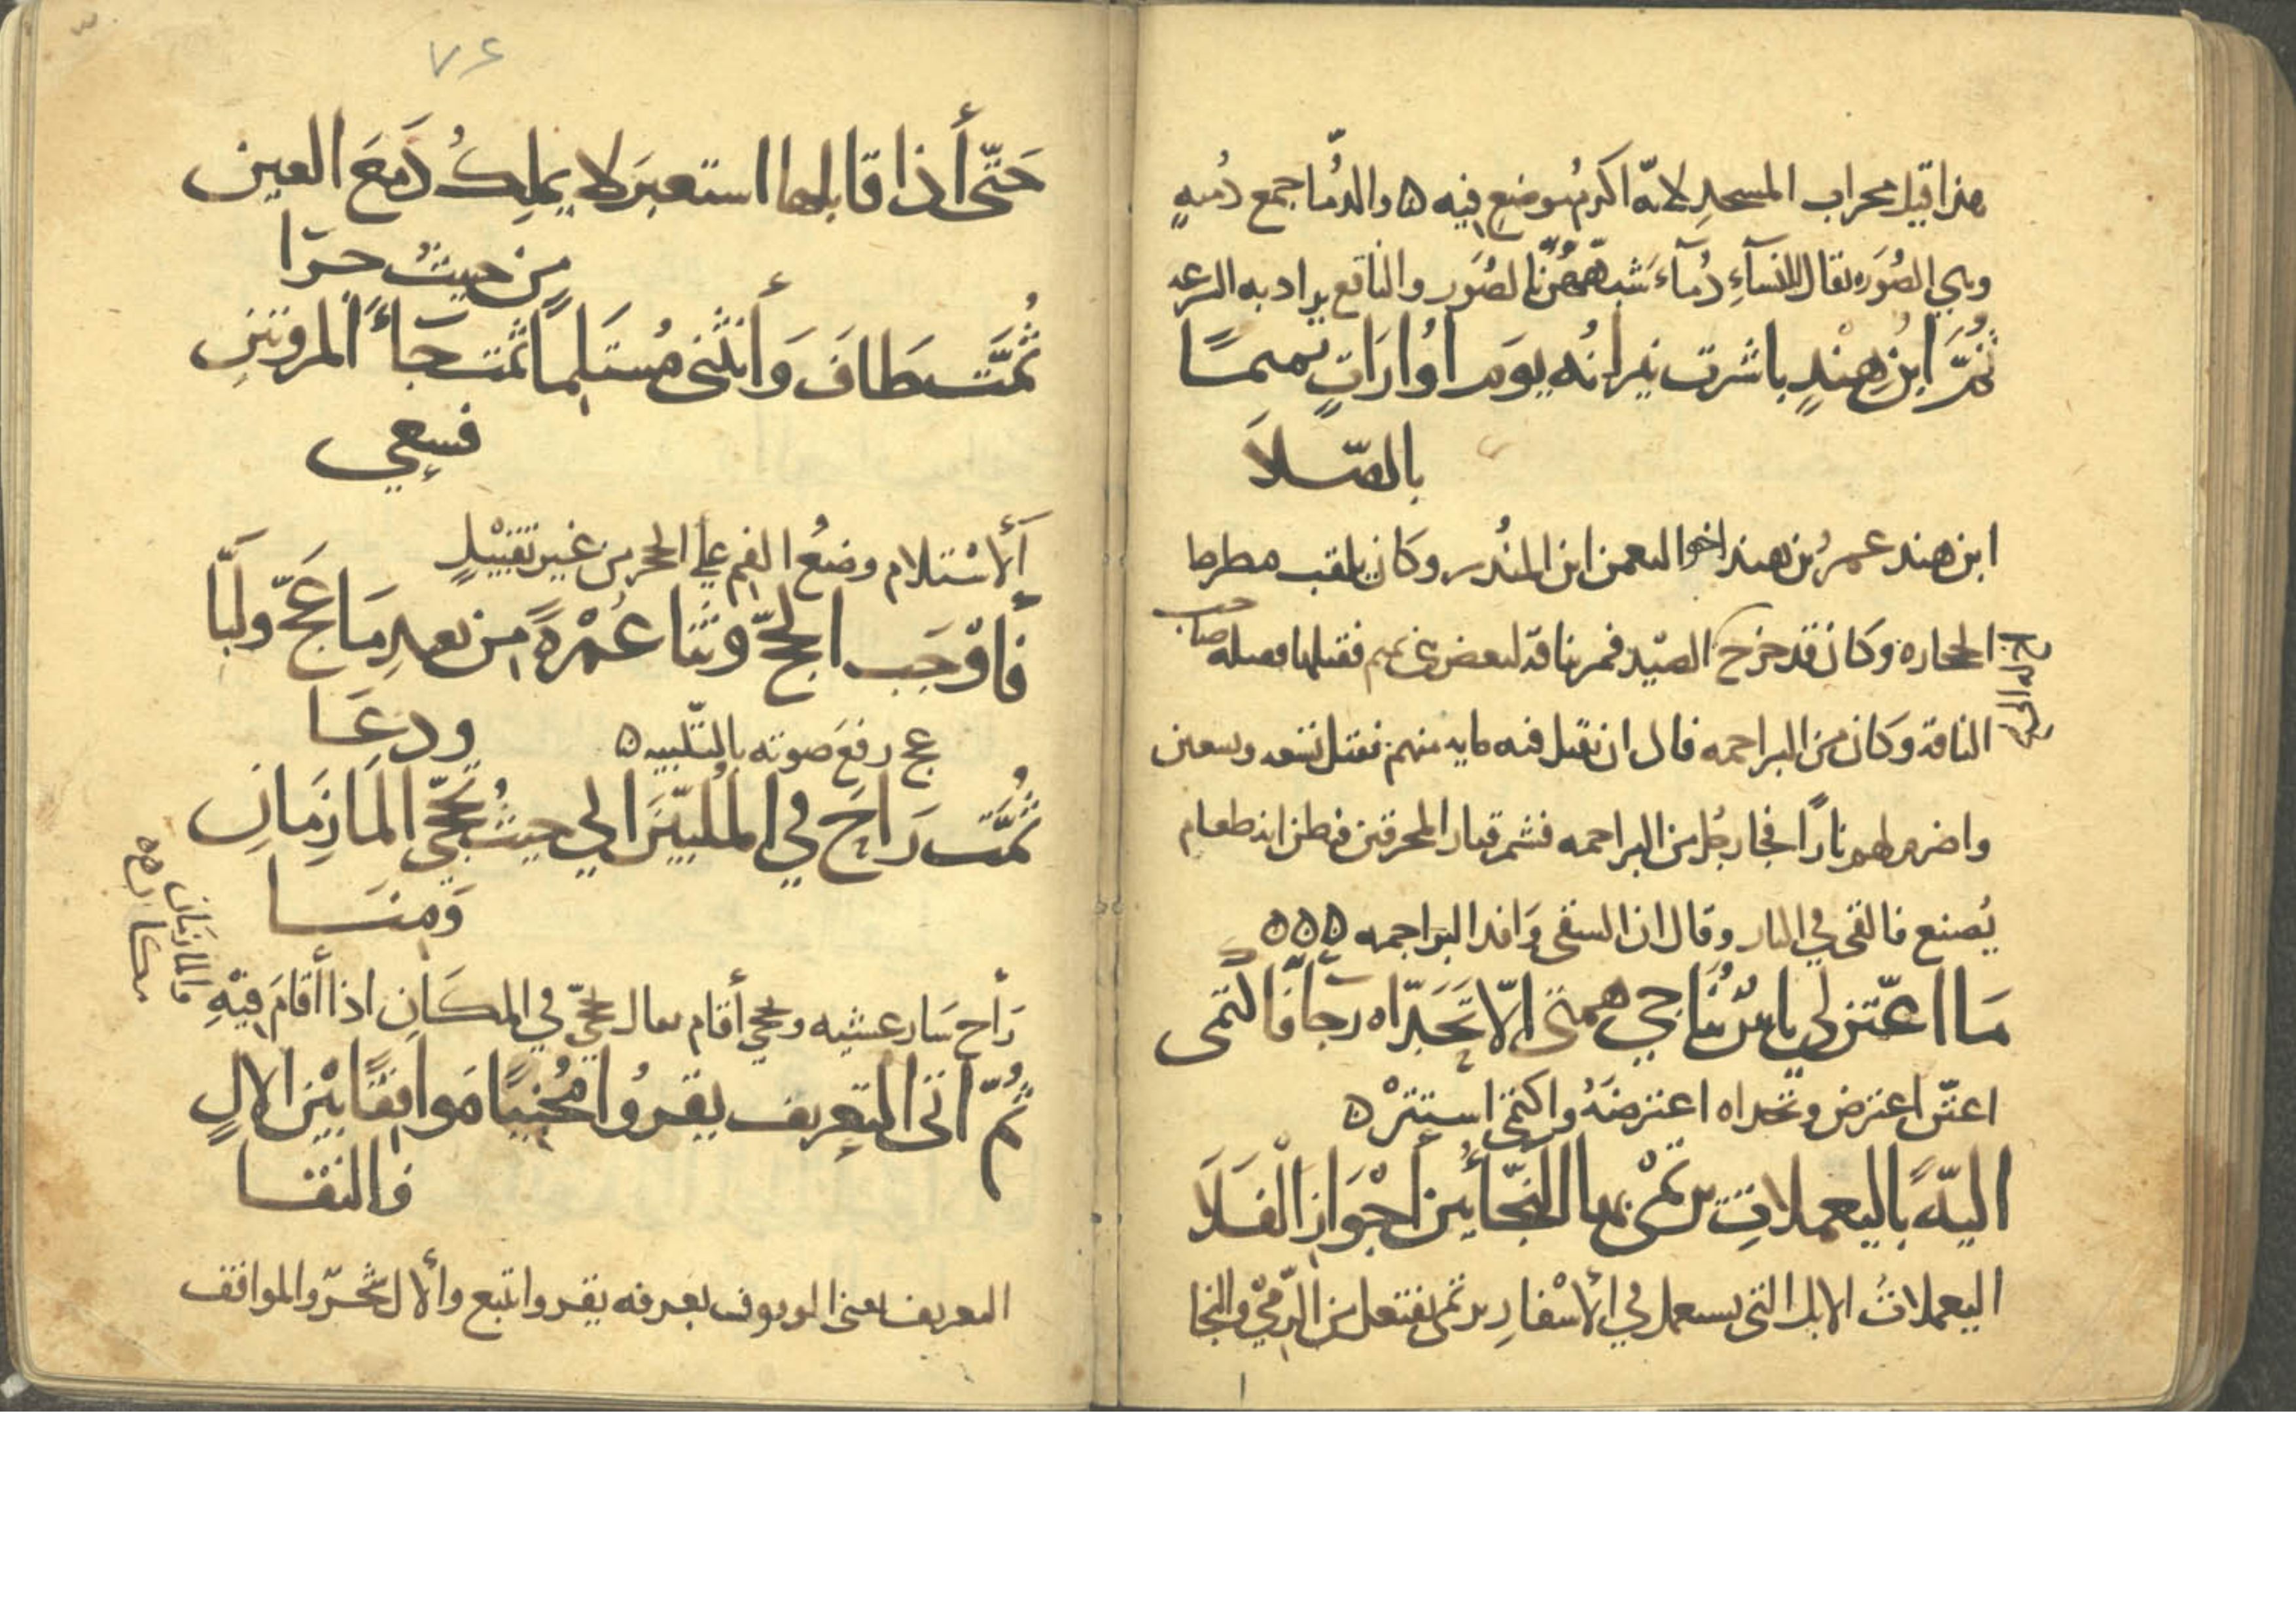 هذا قيل محراب المسجد لانه اكرم موضع فيه ه والدُّما جمع دُميهٍ
وهي الصُوَره يقال للنسآءِ دُمآء شبههُنَّ بالصُوَر والناقع يراد به
ثُمَّ ابنُ هندٍ باشرت نيرانُه يوم اُوارَاتٍ تميمًا
بالصّلاَ
ابن هند عمرُ بن هند اخو النعمن ابن المنذر وكان يلقب مضرط
الحجاره وكان قد خرج الصيد فمر بناقة لبعض بني تميم فقتلها صاحب
الناقة وكان من البراجمه قال ان يقتل فيه مايه منهم فقتل تسعه وتسعين
واضرم لهم نارًا فجا رجُل من البراجمه فشم قتار المحرقين فظن انه طعام
يُصنع فالقى في النار وقال ان الشقي وَافد البراجمه ه ه ه
مَا اعتنّ لي ياسٌ يُناجي همتى اِلّا تحَدَّاه رجآءٌ فاكتمى
اعتنّ اعترض وتحداه اعترضَهُ واكتمى استترْ ه
اليّةً باليعملاتِ يرتمْى بها النجآءُ بين أجْوَازِ الْفَلَا
اليعملاتُ الابل التى يستعمل في الأسْفارِ يرتمى يفتعل من الرّميْ والنجا
٧٤
حَتّى أذا قابلها استعبَر لا يملِكُ دَمعَ العين
مِن حيثُ جَرَا
ثُمَّت طَافَ وَأنثنى مُستَلِمًا ثمت جَآءَ المروتينِ
فسعي
ألاسْتلام وضعُ الفم علي الحجر من غير تقبيْلٍ
فأوْجَب الحجّ وثنا عُمْرةً من بعدِ مَا عَجّ ولَبَّا
ودعَا
عج رفعَ صوته بالتّلبيه ه
ثُمَّت رَاحَ في المُلبّينَ الي حيثُ تحجّى المَازِمَانِ
وَمِنَا
والمازمان
مكان ه ه
رَأح سَار عشيه وتحجي أقام يقال تحجّي في المكَانِ اذا أقامَ فيْهِ
ثُمّ اتى التعرِيف يقرُوا مُخبِتًا مَواقِفًا بَيْن الالِ
فالنقا
التعريف يعنى الوقوف بعرفه يقروا تتبع وألال والمواقف